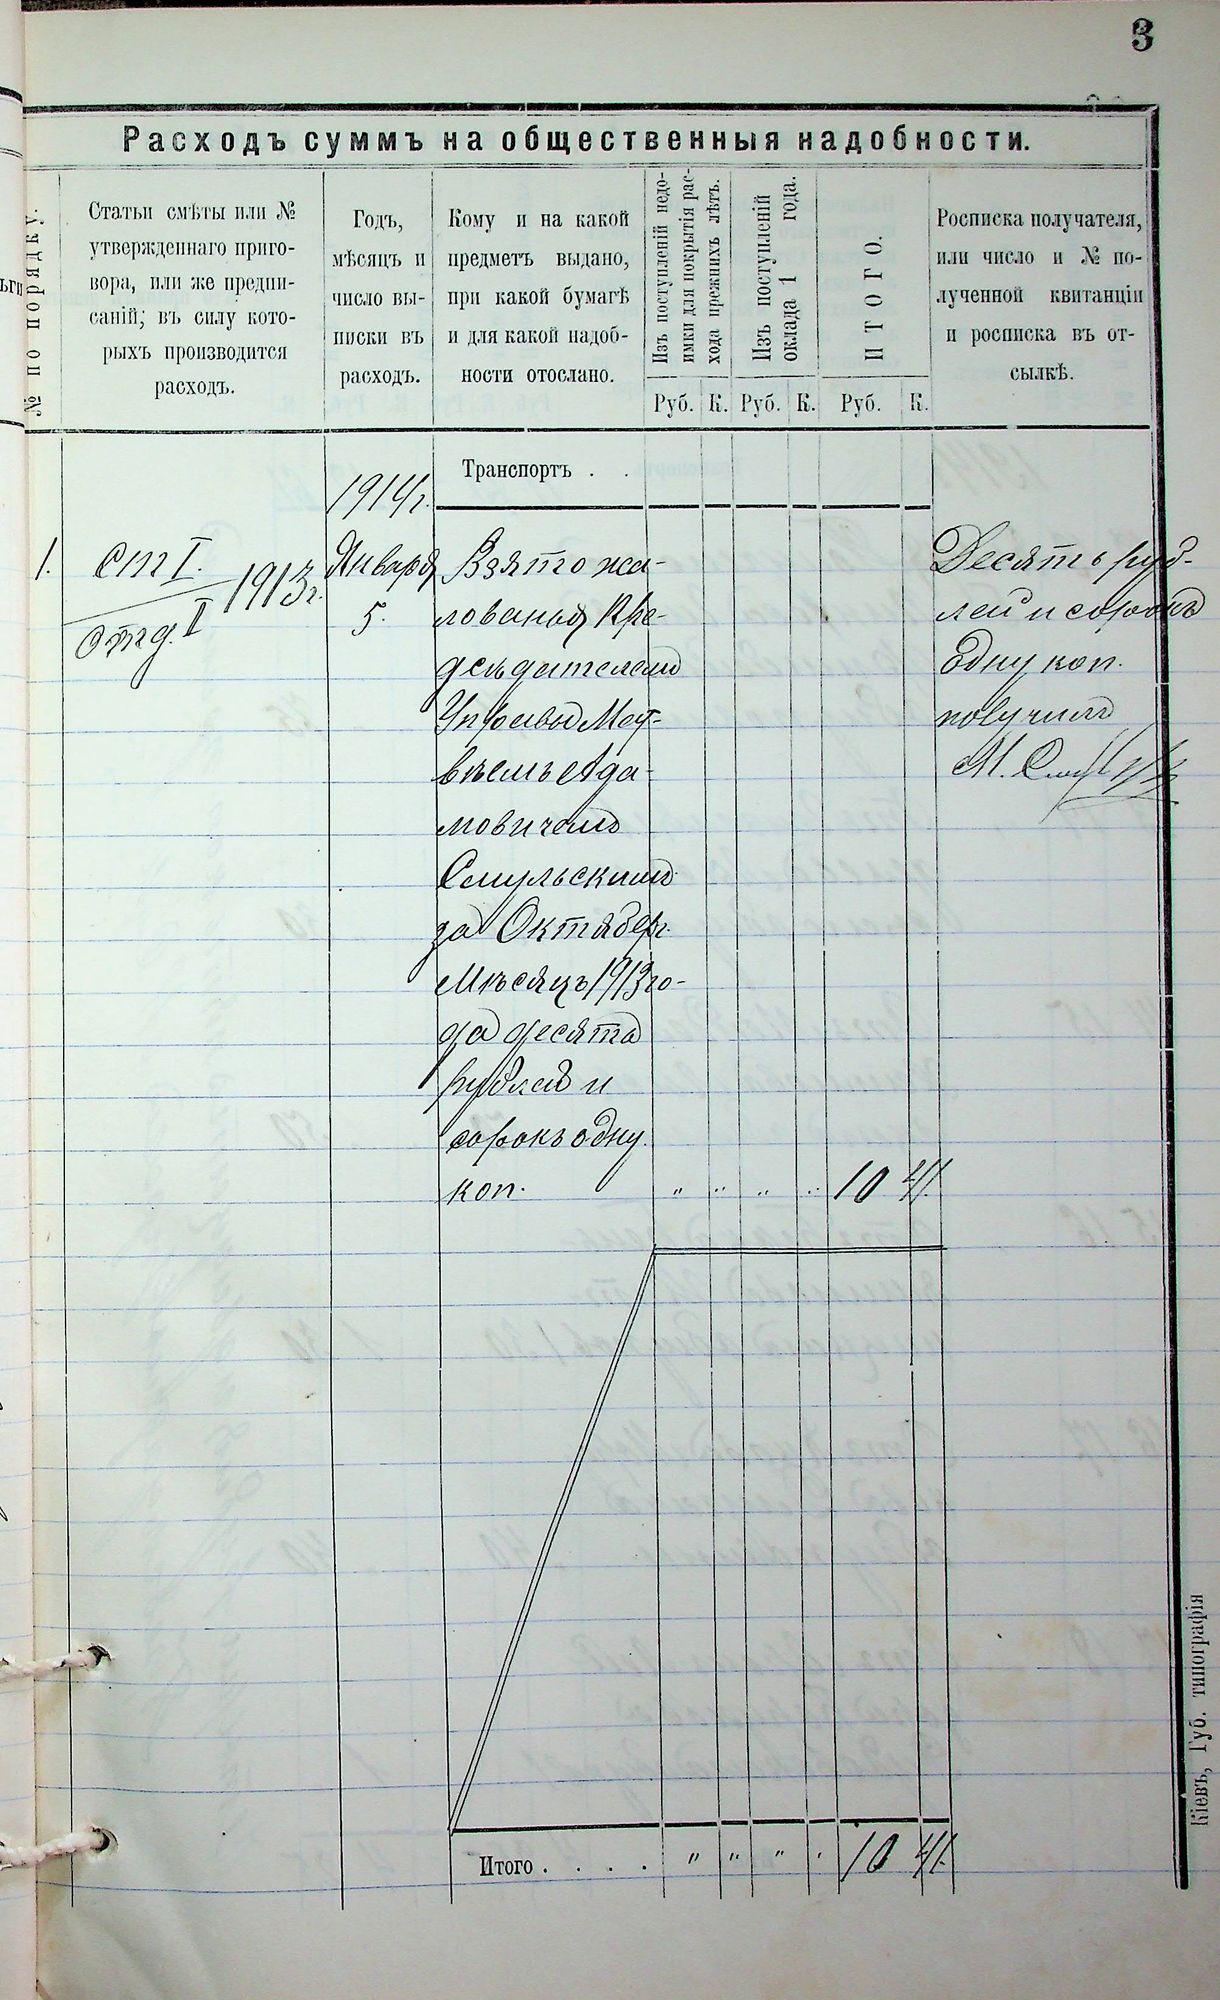 3
Расходъ суммъ на общественныя надобности.
№ по порядку.
Статьи смѣты или №
утвержденнаго приго-
вора, или же предпи-
саній; въ силу кото-
рыхъ производится
расходъ.
Годъ,
мѣсяцъ и
число вы-
писки въ
расходъ.
Кому и на какой
предметъ выдано,
при какой бумагѣ
и для какой надоб-
ности отослано.
Изъ поступленій недо-
имки для покрытія рас-
хода прежнихъ лѣтъ.
Изъ поступленій
оклада 1 года.
ИТОГО.
Росписка получателя,
или число и № по-
лученной квитанціи
и росписка въ от-
сылкѣ.
Руб. К. Руб. К. Руб. К.
Транспортъ . .
1914 г.
1.
ст I.
отд. II
1913 г.
Января
5.
Взято жа-
лованья Пре-
дсѣдателемъ
Управы Мат-
вѣемъ Ада-
мовичемъ
Смульскимъ
за Октябрь
Мѣсяцъ 1913 го-
да десять
рублей и
сорокъ одну
коп. " " " " 10 41.
Десять руб-
лей и сорокъ
одну коп.
получилъ
М. Смульскій
Итого . . . . " " " " 10 41.
Кіевъ, Губ. типографія